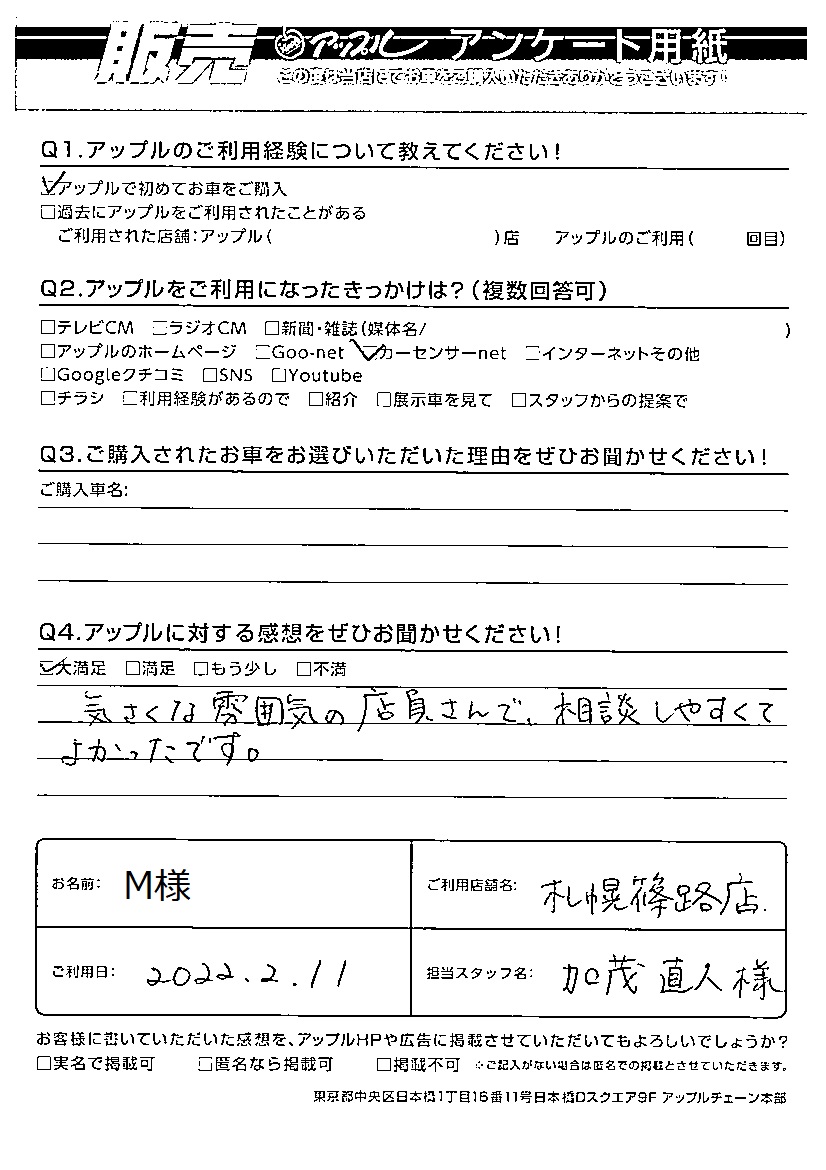 販売 アップル アンケート用紙
この度は当店にてお車をご購入いただきありがとうございます!
Q1.アップルのご利用経験について教えてください!
☑アップルで初めてお車をご購入
□過去にアップルをご利用されたことがある
ご利用された店舗:アップル( )店 アップルのご利用( 回目)
Q2.アップルをご利用になったきっかけは?(複数回答可)
□テレビCM □ラジオCM □新聞・雑誌(媒体名/ )
□アップルのホームページ □Goo-net ☑カーセンサーnet □インターネットその他
□Googleクチコミ □SNS □Youtube
□チラシ □利用経験があるので □紹介 □展示車を見て □スタッフからの提案で
Q3.ご購入されたお車をお選びいただいた理由をぜひお聞かせください!
ご購入車名:
Q4.アップルに対する感想をぜひお聞かせください!
☑大満足 □満足 □もう少し □不満
気さくな雰囲気の店員さんで、相談しやすくて
よかったです。
お名前: M様 ご利用店舗名: 札幌篠路店.
ご利用日: 2022.2.11 担当スタッフ名: 加茂 直人 様
お客様に書いていただいた感想を、アップルHPや広告に掲載させていただいてもよろしいでしょうか?
□実名で掲載可 □匿名なら掲載可 □掲載不可 ※ご記入がない場合は匿名での掲載とさせていただきます。
東京都中央区日本橋1丁目16番11号日本橋Dスクエア9F アップルチェーン本部